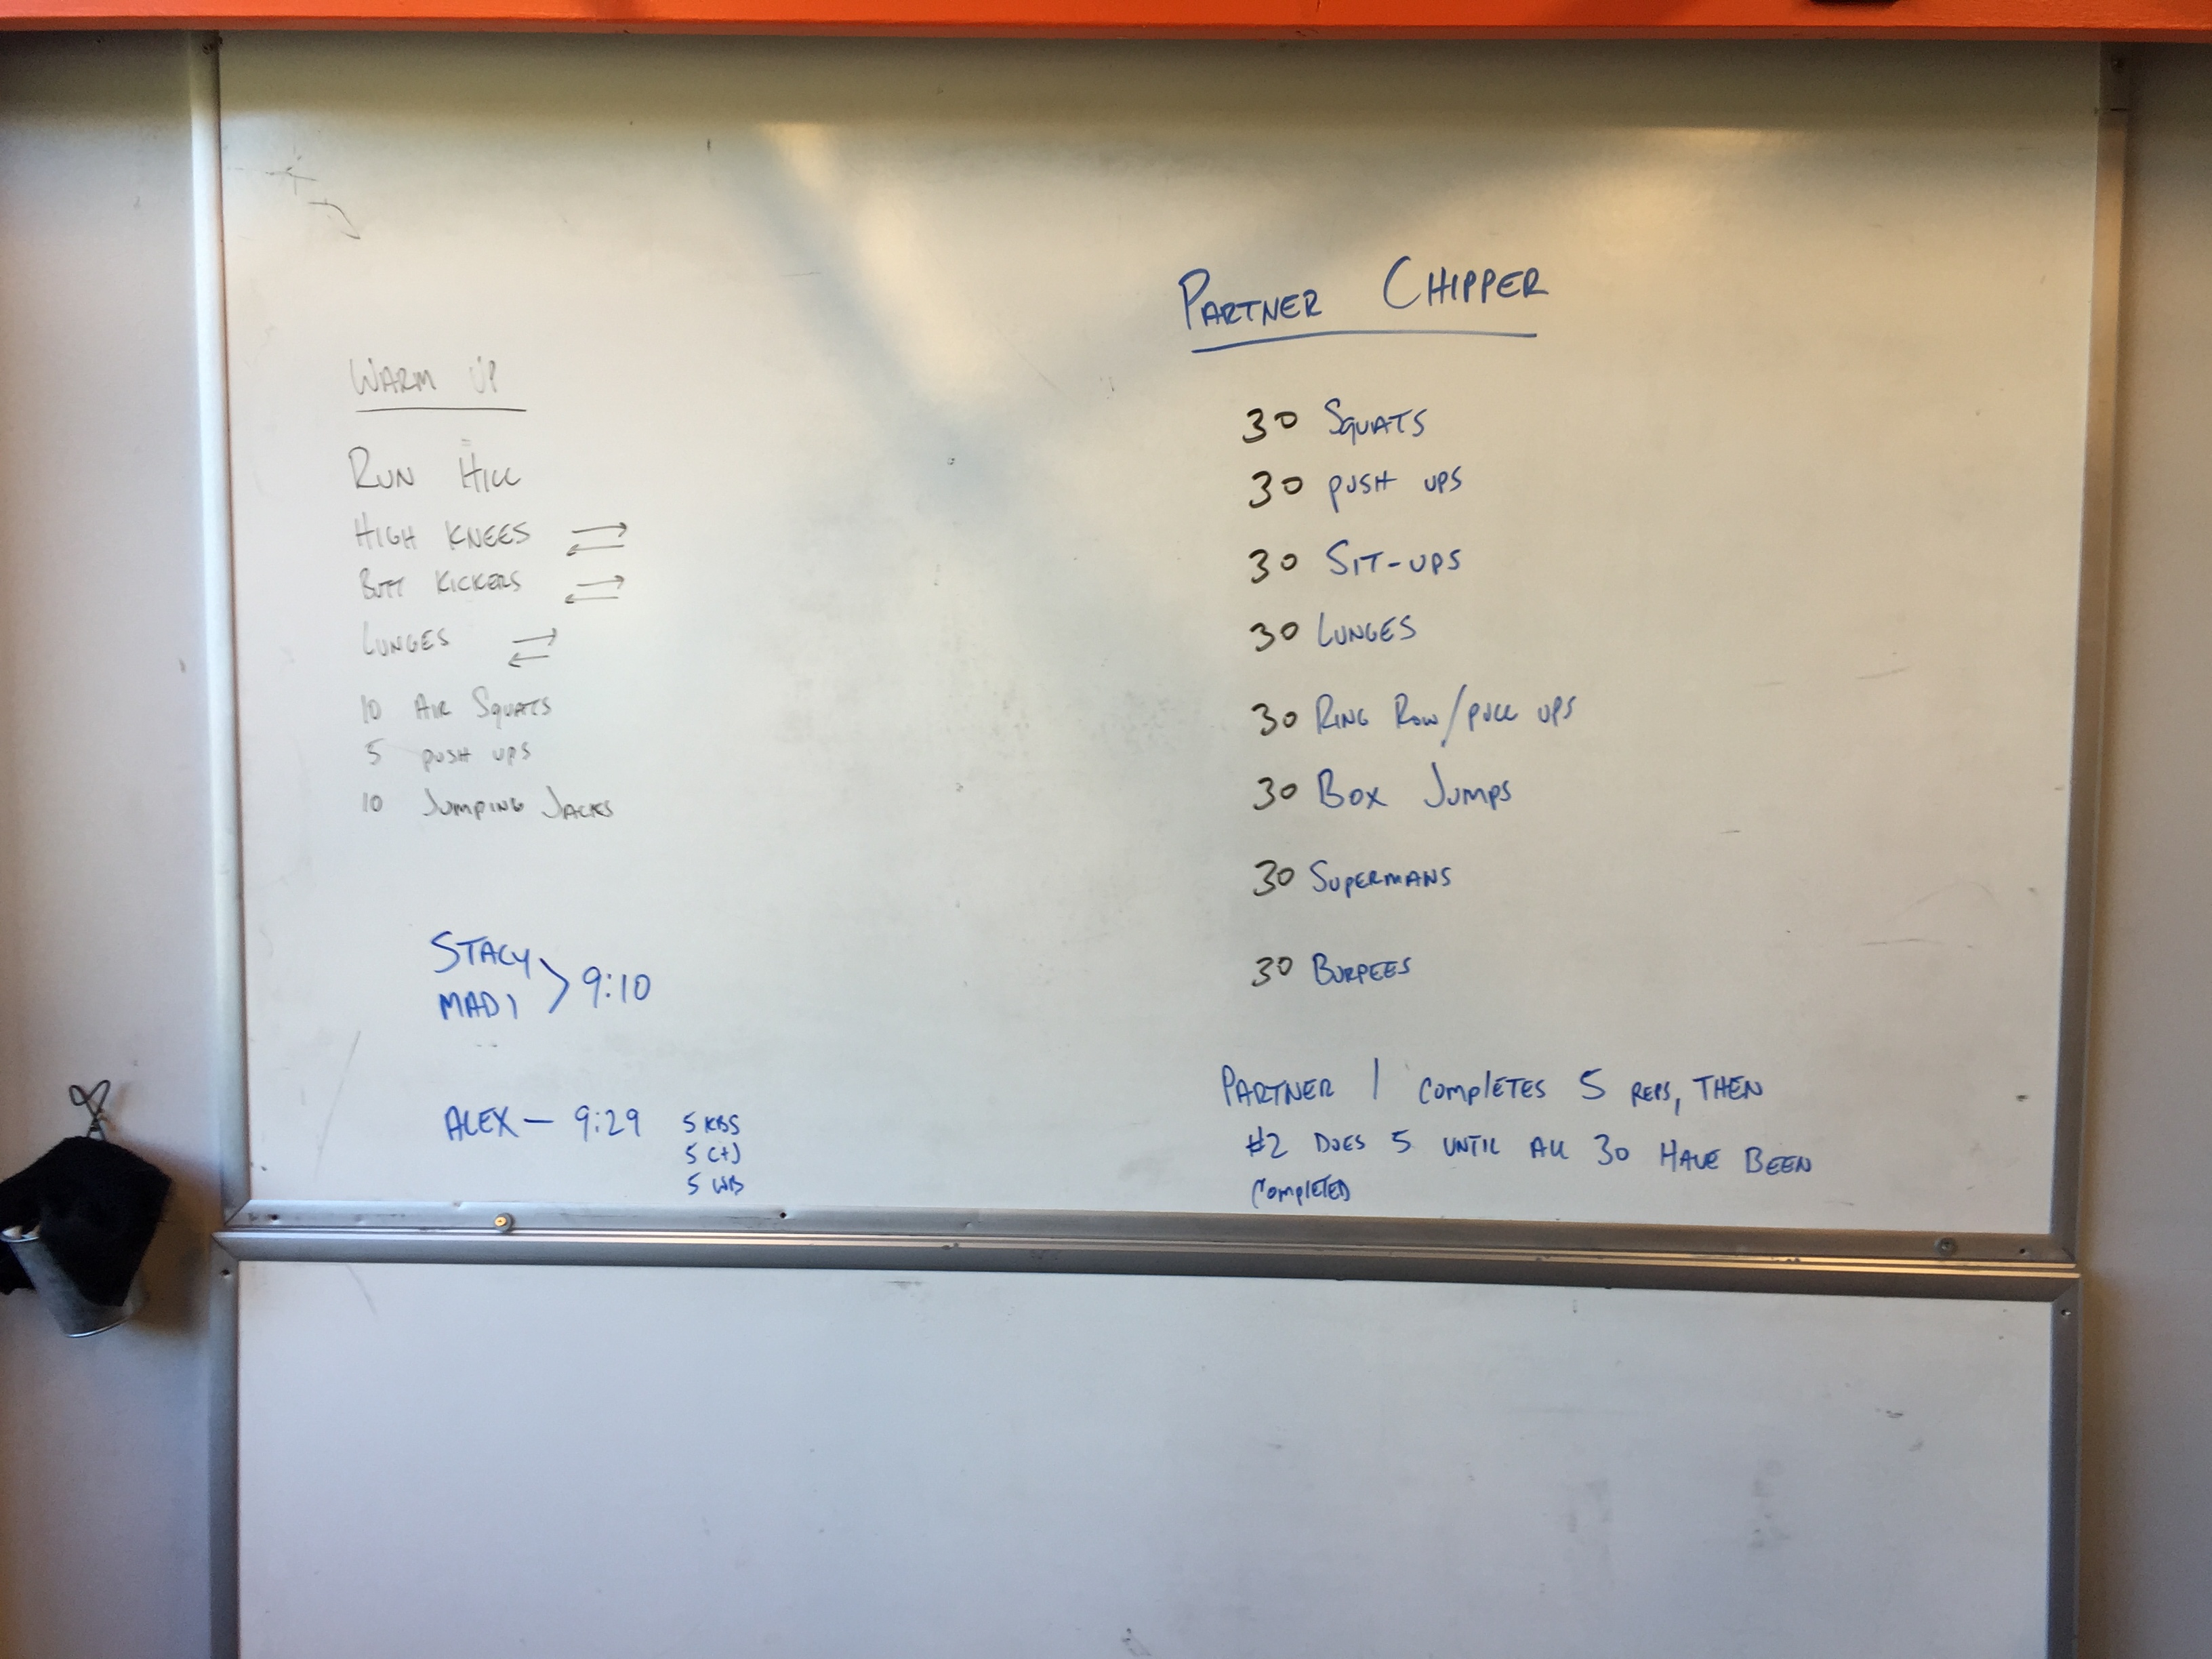 WARM UP
RUN HILL
HIGH KNEES ⇄
BUTT KICKERS ⇄
LUNGES ⇄
10 AIR SQUATS
5 PUSH UPS
10 JUMPING JACKS
STACY
MADI > 9:10
ALEX — 9:29 5 KBS
5 C+J
5 WB
PARTNER CHIPPER
30 SQUATS
30 PUSH UPS
30 SIT-UPS
30 LUNGES
30 RING ROW/PULL UPS
30 BOX JUMPS
30 SUPERMANS
30 BURPEES
PARTNER 1 COMPLETES 5 REPS, THEN
#2 DOES 5 UNTIL ALL 30 HAVE BEEN
COMPLETED